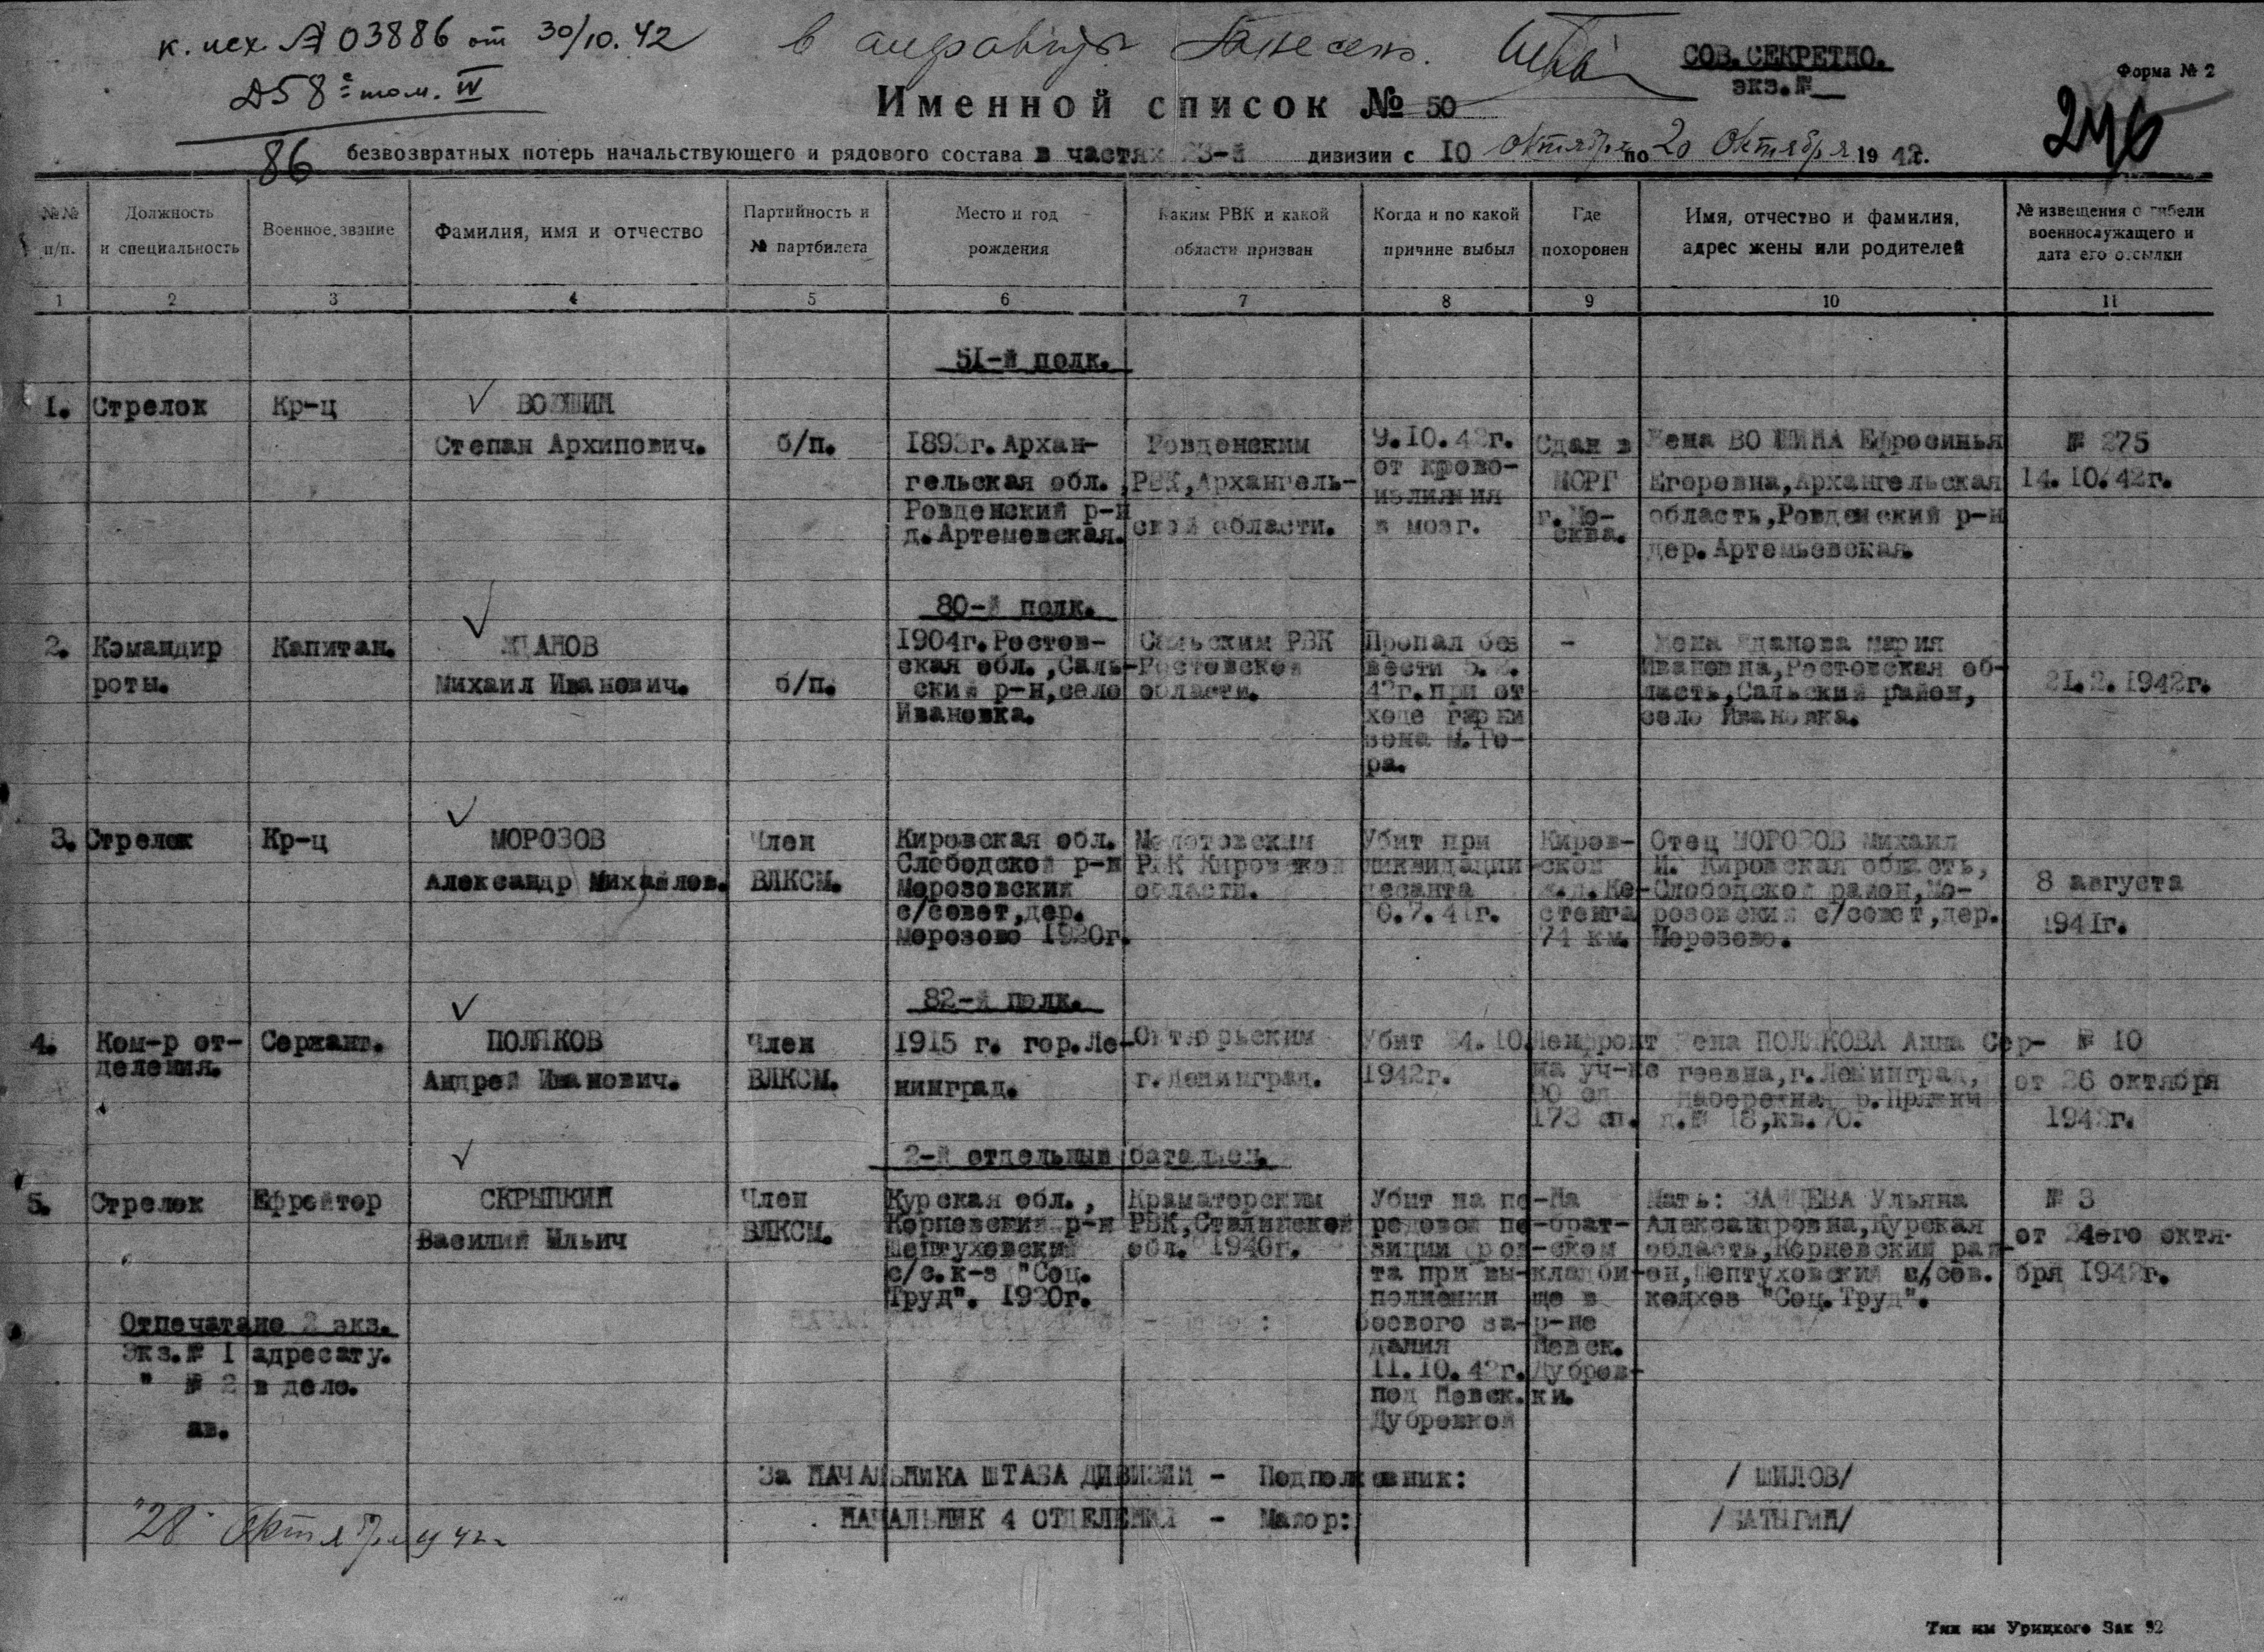 к. исх. 03886 от 30/10.42
в алфавит занесено.
СОВ.СЕКРЕТНО.
экз.№
Форма № 2
том. IV
246
Именной список № 50
86
безвозвратных потерь начальствующего и рядового состава в частях 23-й дивизии с 10 октября по 20 октября 1942г.
№№ п/п.
Должность и специальность
Военное звание
Фамилия, имя и отчество
Партийность и № партбилета
Место и год рождения
Каким РВК и какой области призван
Когда и по какой причине выбыл
Где похоронен
Имя, отчество и фамилия, адрес жены или родителей
№ извещения о гибели военнослужащего и дата его отсылки
1 2 3 4 5 6 7 8 9 10 11
51-й полк.
1.
Стрелок
Кр-ц
Степан Архипович.
б/п.
г. Архан-
гельская обл.,
Ровденский р-н
д.Артемевская.
Ровденским
РВК,Архангель-
ской области.
9.10.42г.
от крово-
излияния
в мозг.
Сдан в
МОРГ
г.Мо-
сква.
Жена Ефросинья
Егоровна,Архангельская
область,Ровденский р-н
дер.Артемьевская.
№ 275
14.10.42г.
80-й полк.
2.
Командир
роты.
Капитан.
ЖДАНОВ
Михаил Иванович.
б/п.
1904г.Ростов-
ская обл.,Саль-
ский р-н,село
Ивановка.
Сальским РВК
Ростовской
области.
Пропал без
вести
42г.при от
ходе гарни
зона м.Го-
ра.
-
Жена Жданова Мария
Ивановна,Ростовская об-
ласть,Сальский район,
село Ивановка.
21.2.1942г.
3.
Стрелок
Кр-ц
МОРОЗОВ
Александр Михайлов.
Член
ВЛКСМ.
Кировская обл.
Слободской р-н
Морозовский
с/совет,дер.
Морозово 1920г.
Молотовским
РВК Кировской
области.
Убит при
ликвидации
десанта
.7.41г.
Киров-
ской
ж.д.Ко-
стенга
74 км.
Отец МОРОЗОВ Михаил
И. Кировская область,
Слободской район,Мо-
розовский с/совет,дер.
Морозово.
8 августа
1941г.
82-й полк.
4.
Ком-р от-
деления.
Сержант.
ПОЛЯКОВ
Андрей Иванович.
Член
ВЛКСМ.
1915 г. гор.Ле-
нинград.
Октябрьским
г.Ленинград.
Убит .10.
1942г.
Ленфронт
на уч-ке
90 сд
173 сп.
Жена ПОЛЯКОВА Анна Сер-
геевна,г.Ленинград,
Набережная р.Пряжки
д.№ 18,кв.70.
№ 10
от 26 октября
1942г.
2-й отдельный батальон.
5.
Стрелок
Ефрейтор
СКРЫПКИН
Василий Ильич
Член
ВЛКСМ.
Курская обл.,
Кореневский р-н
Шептуховский
с/с.к-з "Соц.
Труд". 1920г.
Краматорским
РВК,Сталинской
обл. 1940г.
Убит на пе-
редовой по-
зиции фрон-
та при вы-
полнении
боевого за-
дания
11.10.42г.
под Невск.
Дубровкой
На
брат-
ском
кладби-
ще в
р-не
Невск.
Дубров-
ки.
Мать: ЗАЙЦЕВА Ульяна
Александровна,Курская
область,Кореневский рай-
он,Шептуховский с/сов.
колхоз "Соц.Труд".
№ 3
от 24-го октя-
бря 1942г.
Отпечатано 2 экз.
Экз.№ 1 адресату.
" № 2 в дело.
ав.
За НАЧАЛЬНИКА ШТАБА ДИВИЗИИ - Подполковник: / ШИЛОВ/
НАЧАЛЬНИК 4 ОТДЕЛЕНИЯ - Майор: /БАТЫГИН/
"28" октября 42г.
Тип им Урицкого Зак 92